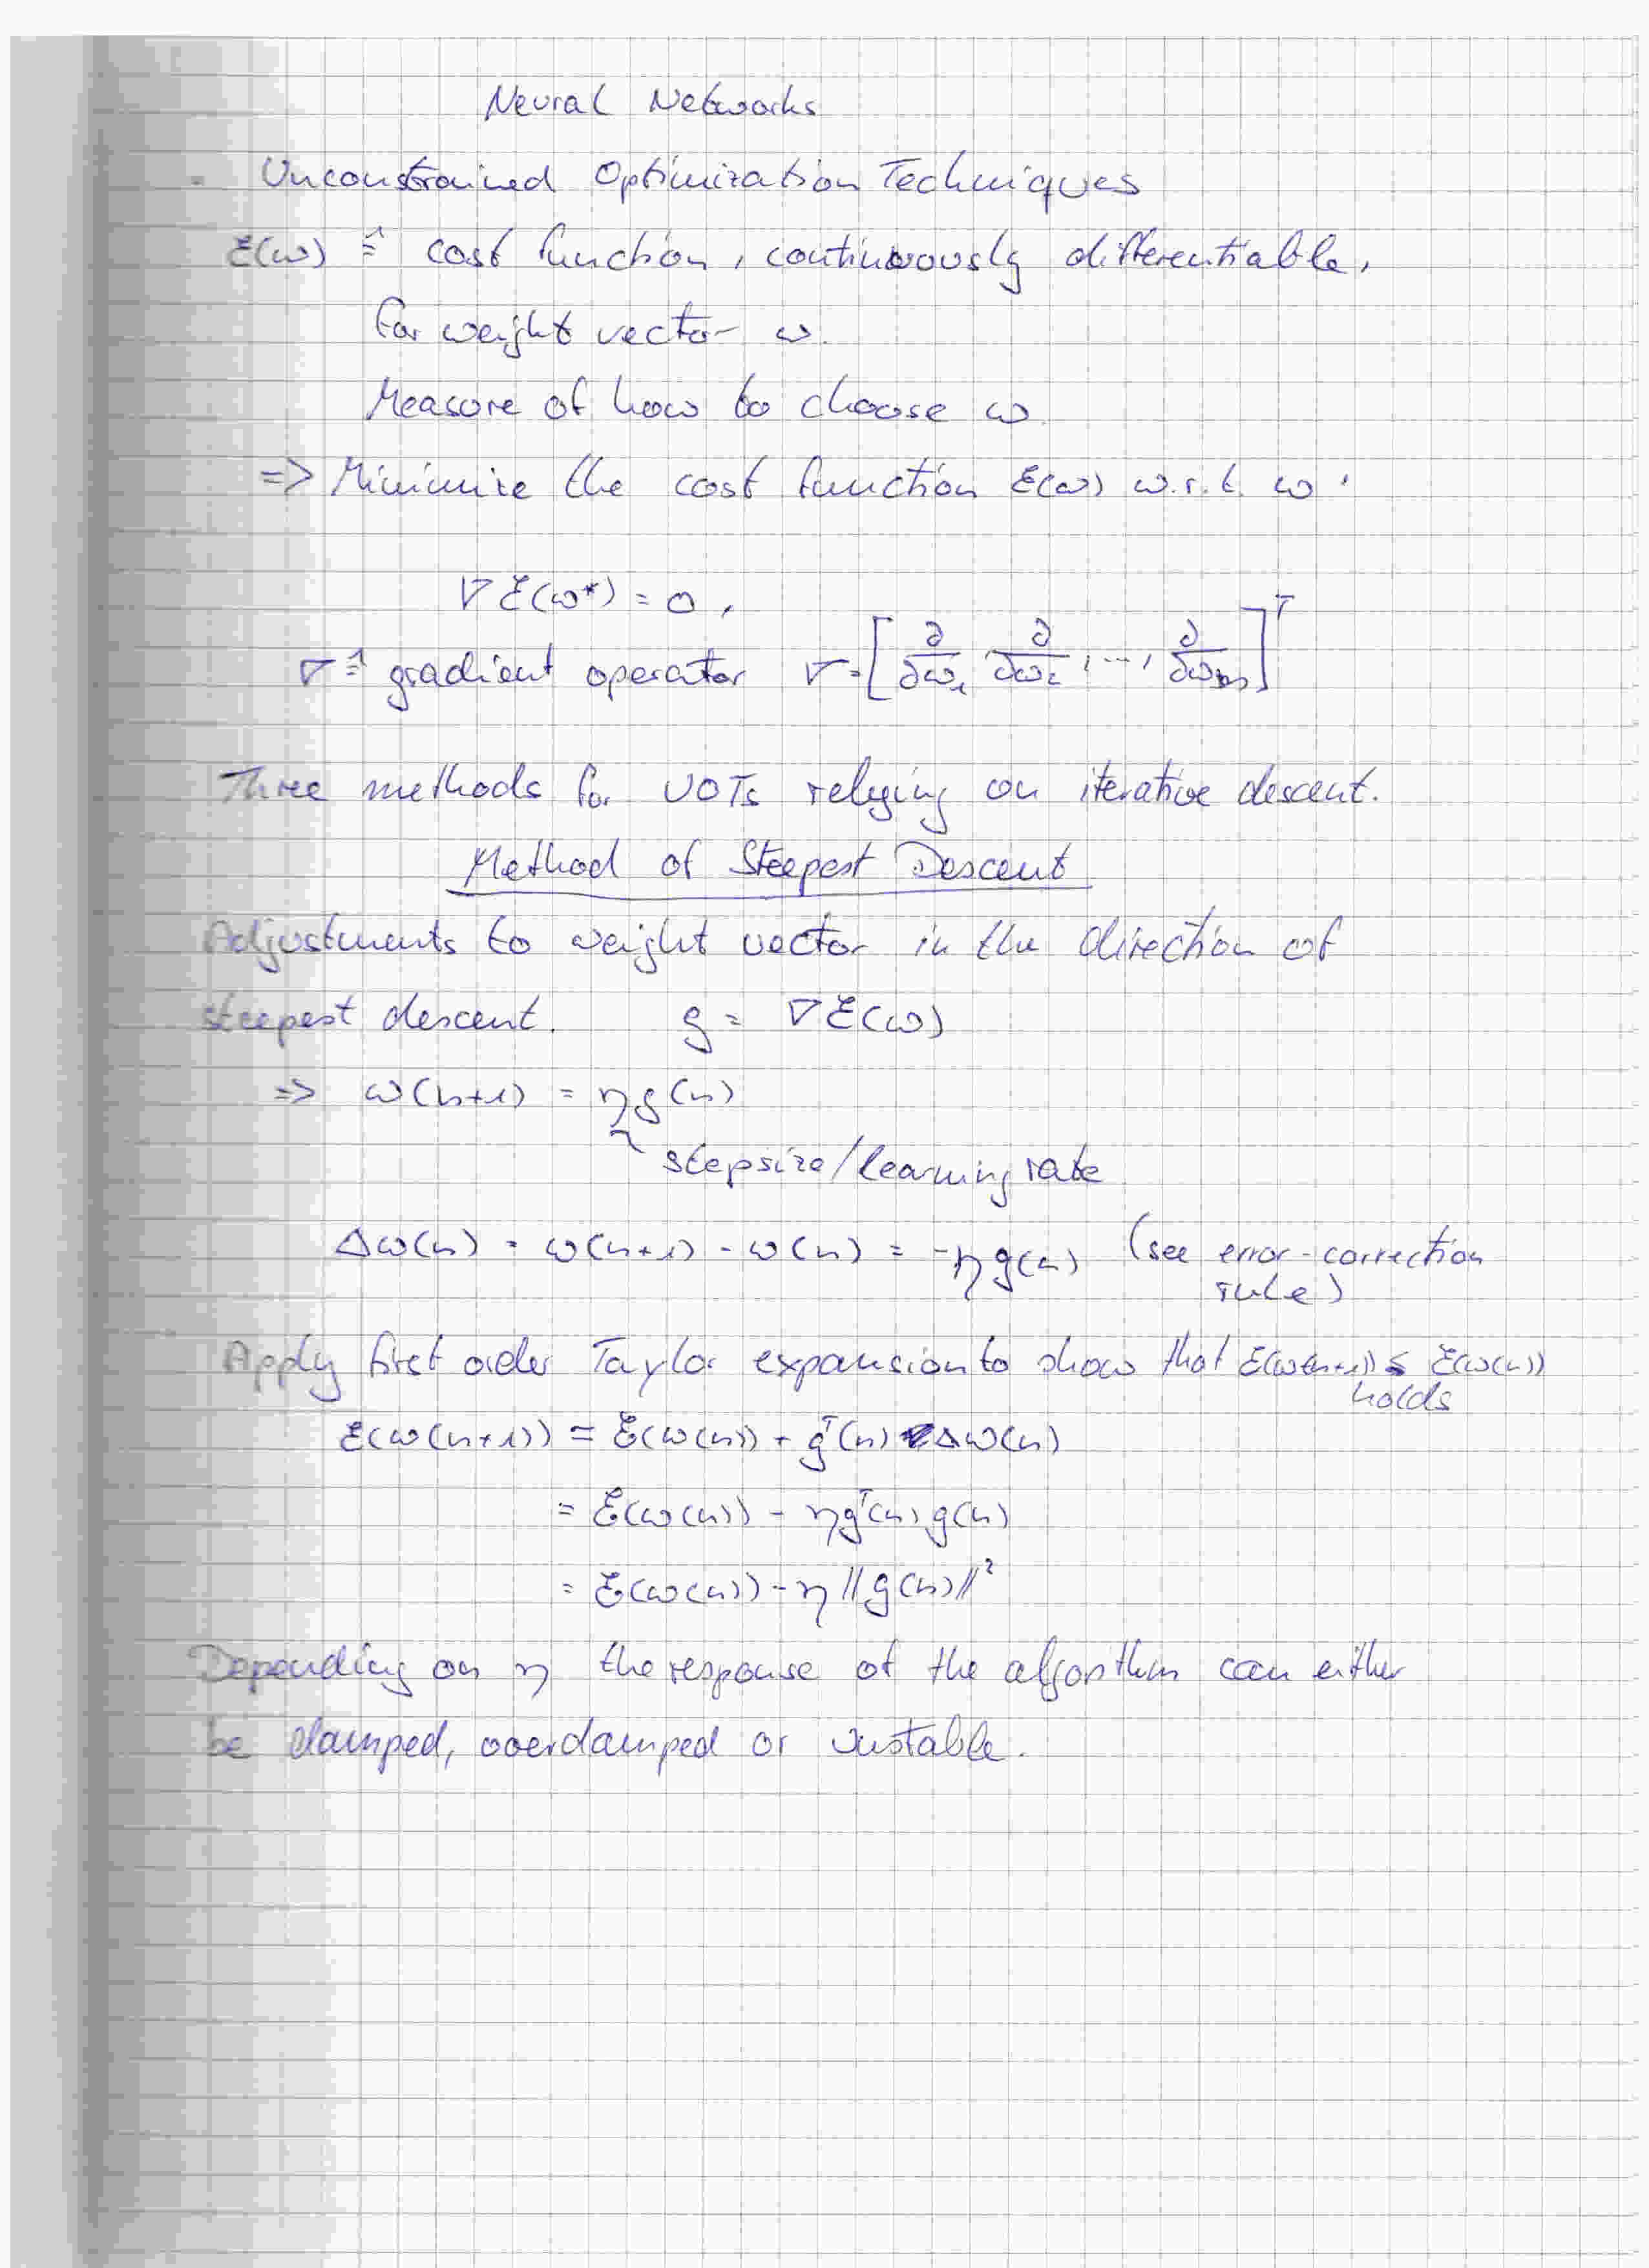 Neural Networks
- Unconstrained Optimization Techniques
ℰ(ω) ≙ cost function, continuously differentiable,
for weight vector ω.
Measure of how to choose ω
=> Minimize the cost function ℰ(ω) w.r.t. ω.
∇ℰ(ω*) = 0,
∇ ≙ gradient operator ∇ = [∂/∂ω₁, ∂/∂ω₂, ..., ∂/∂ωₘ]ᵀ
Three methods for UOTs relying on iterative descent.
Method of Steepest Descent
Adjustments to weight vector in the direction of
steepest descent. g = ∇ℰ(ω)
=> ω(n+1) = ηg(n)
stepsize/learning rate
Δω(n) = ω(n+1) - ω(n) = -ηg(n) (see error-correction
rule)
Apply first order Taylor expansion to show that ℰ(ω(n+1)) ≤ ℰ(ω(n))
holds
ℰ(ω(n+1)) ≃ ℰ(ω(n)) + gᵀ(n) Δω(n)
= ℰ(ω(n)) - ηgᵀ(n) g(n)
= ℰ(ω(n)) - η ||g(n)||²
Depending on η the response of the algorithm can either
be damped, overdamped or unstable.